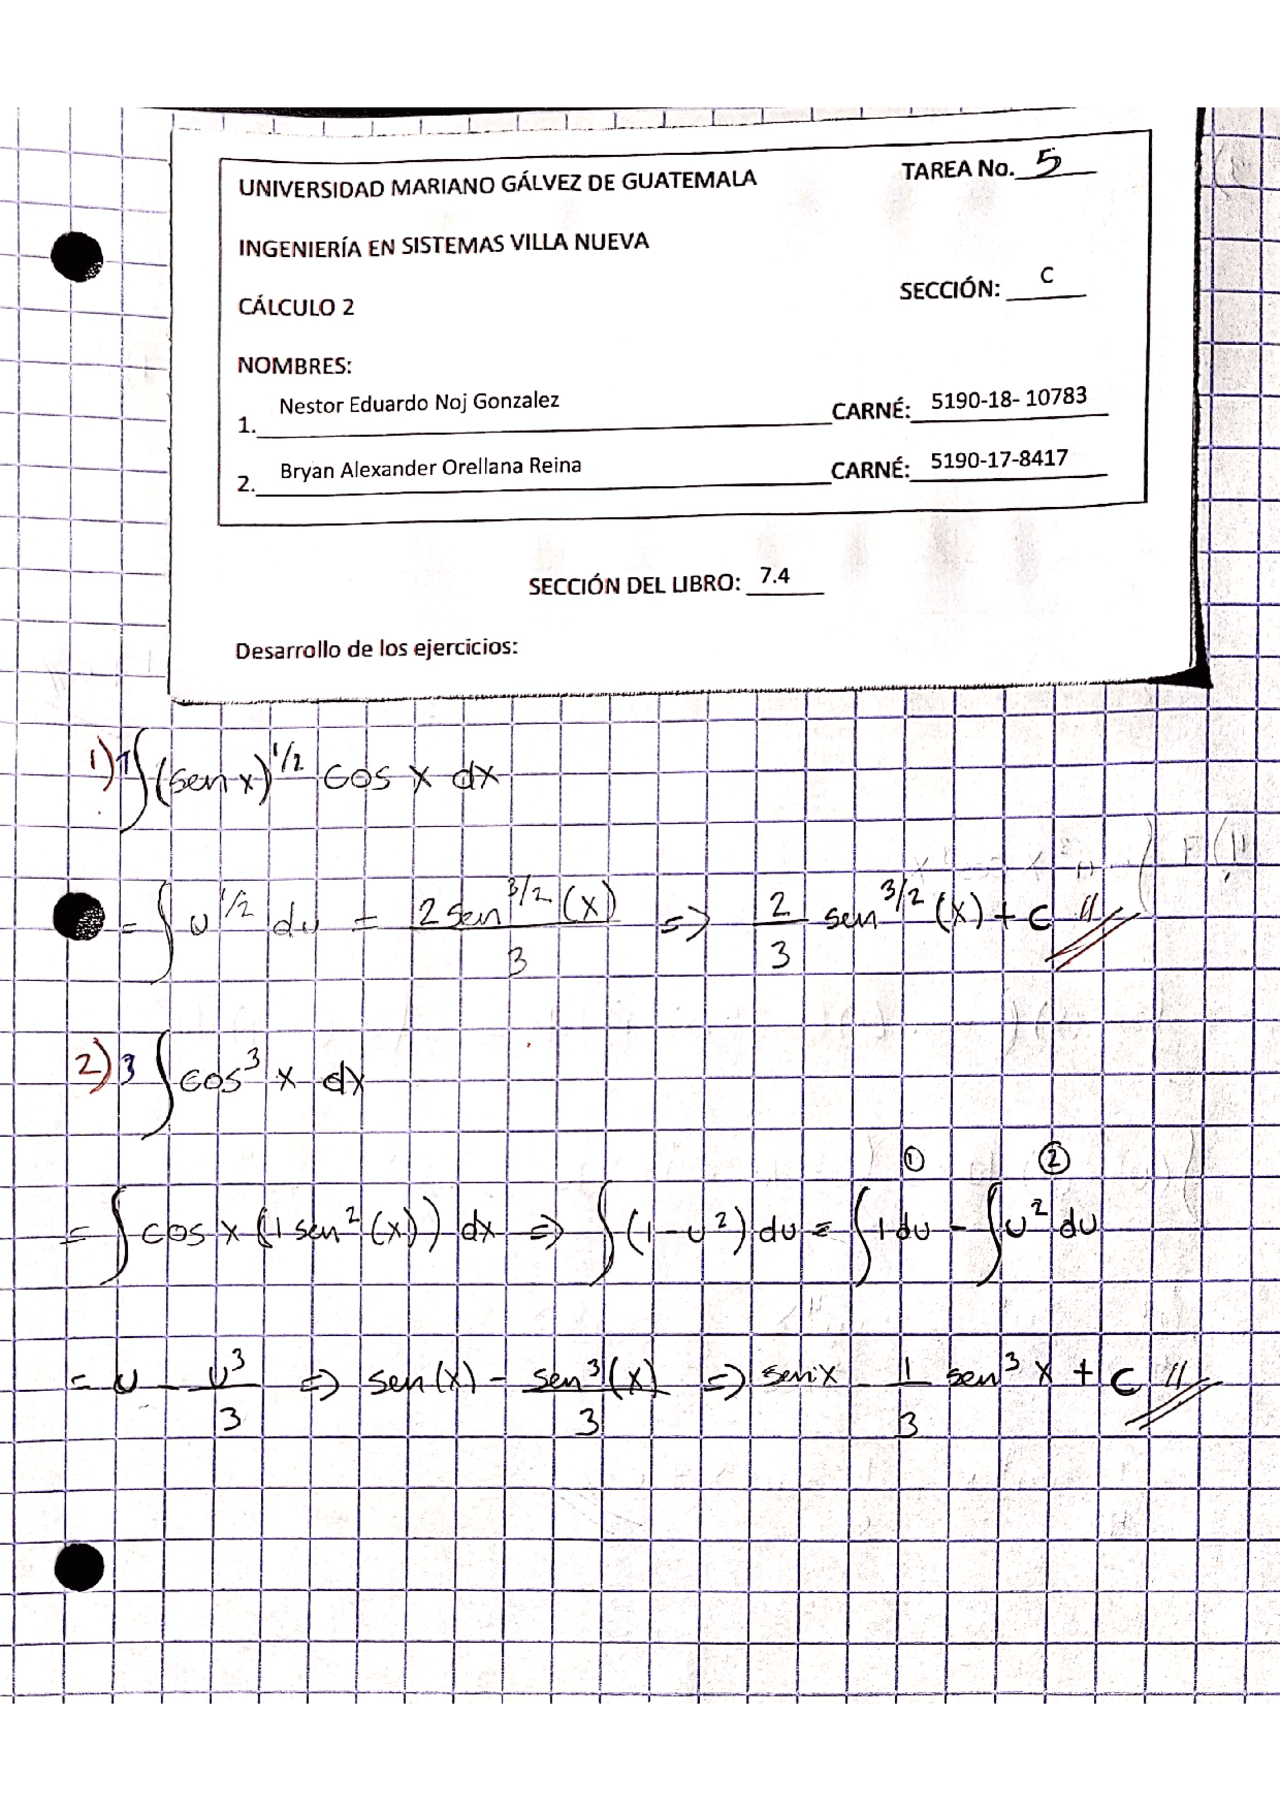 UNIVERSIDAD MARIANO GÁLVEZ DE GUATEMALA TAREA No. 5
INGENIERÍA EN SISTEMAS VILLA NUEVA
CÁLCULO 2 SECCIÓN: C
NOMBRES:
1. Nestor Eduardo Noj Gonzalez CARNÉ: 5190-18- 10783
2. Bryan Alexander Orellana Reina CARNÉ: 5190-17-8417
SECCIÓN DEL LIBRO: 7.4
Desarrollo de los ejercicios:
1) 1 ∫(sen x)^1/2 cos x dx
= ∫ u^1/2 du = 2 sen^3/2 (x) / 3 => 2/3 sen^3/2 (x) + C //
2) 3 ∫ cos^3 x dx
① ②
= ∫ cos x (1 sen^2 (x)) dx => ∫ (1-u^2) du = ∫ 1 du - ∫ u^2 du
= u - u^3/3 => sen(x) - sen^3(x)/3 => sen x - 1/3 sen^3 x + C //